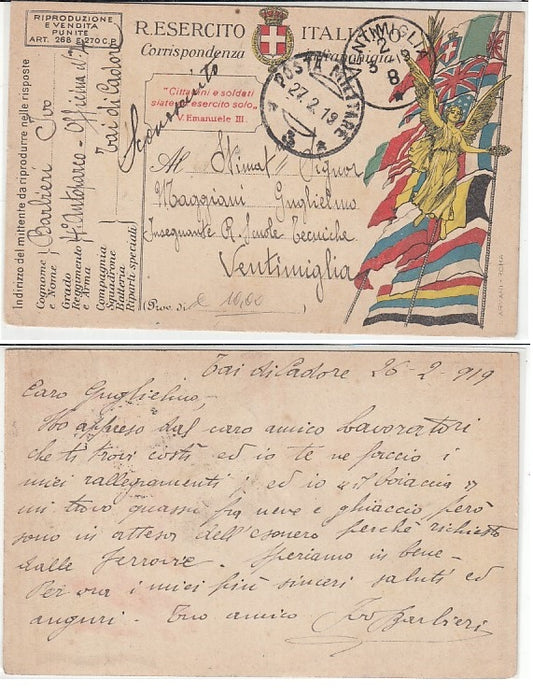 RIPRODUZIONE
E VENDITA
PUNITE
ART. 268 E 270 C.P.
R. ESERCITO ITALIANO
Corrispondenza in Franchigia
"Cittadini e soldati
siate un esercito solo„
V. Emanuele III.
POSTA MILITARE
27.2.19
3
VENTIMIGLIA
8
Al Stimat° Signor
Maggiani Guglielmo
Insegnante R. Scuole Tecniche
Ventimiglia
(Prov. di
10,00
Indirizzo del mittente da riprodurre nelle risposte
Cognome e Nome Barbieri Ivo
Grado
Reggimento e Arma 4° Autoparco - Officina
Compagnia
Squadrone
Batteria
Riparti speciali
Tai di Cadore
ROMA
Tai di Cadore 26-2-919
Caro Guglielmo,
Ho appreso dal caro amico Lavoratori
che ti trovi costì ed io te ne faccio i
miei rallegramenti; ed io "il boiaccia"
mi trovo quassù fra neve e ghiaccio però
sono in attesa dell'esonero perchè richiesto
dalle Ferrovie. Speriamo in bene -
Per ora i miei più sinceri saluti ed
auguri - Tuo amico Ivo Barbieri